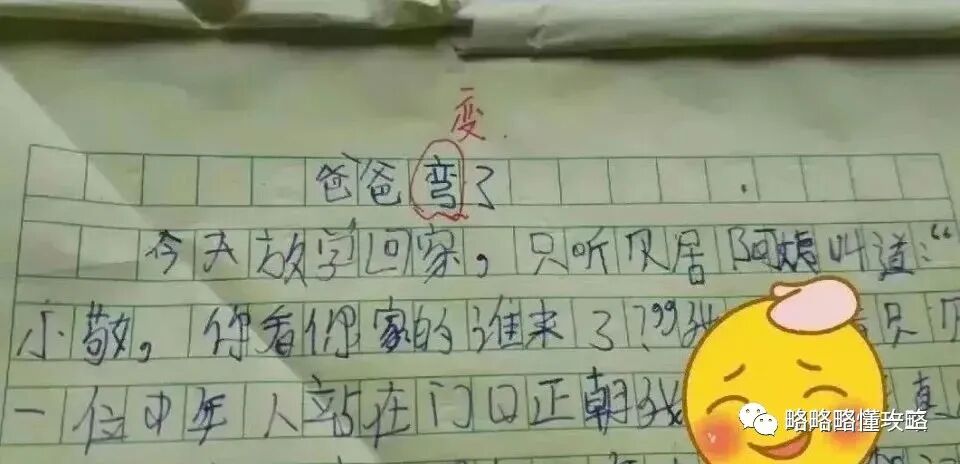 变.
爸爸弯了
今天放学回家，只听见居阿姨叫道：“
小敬，你看你家的谁来了？”我 只见
一位中年人站在门口正朝我 真
略略略懂攻略